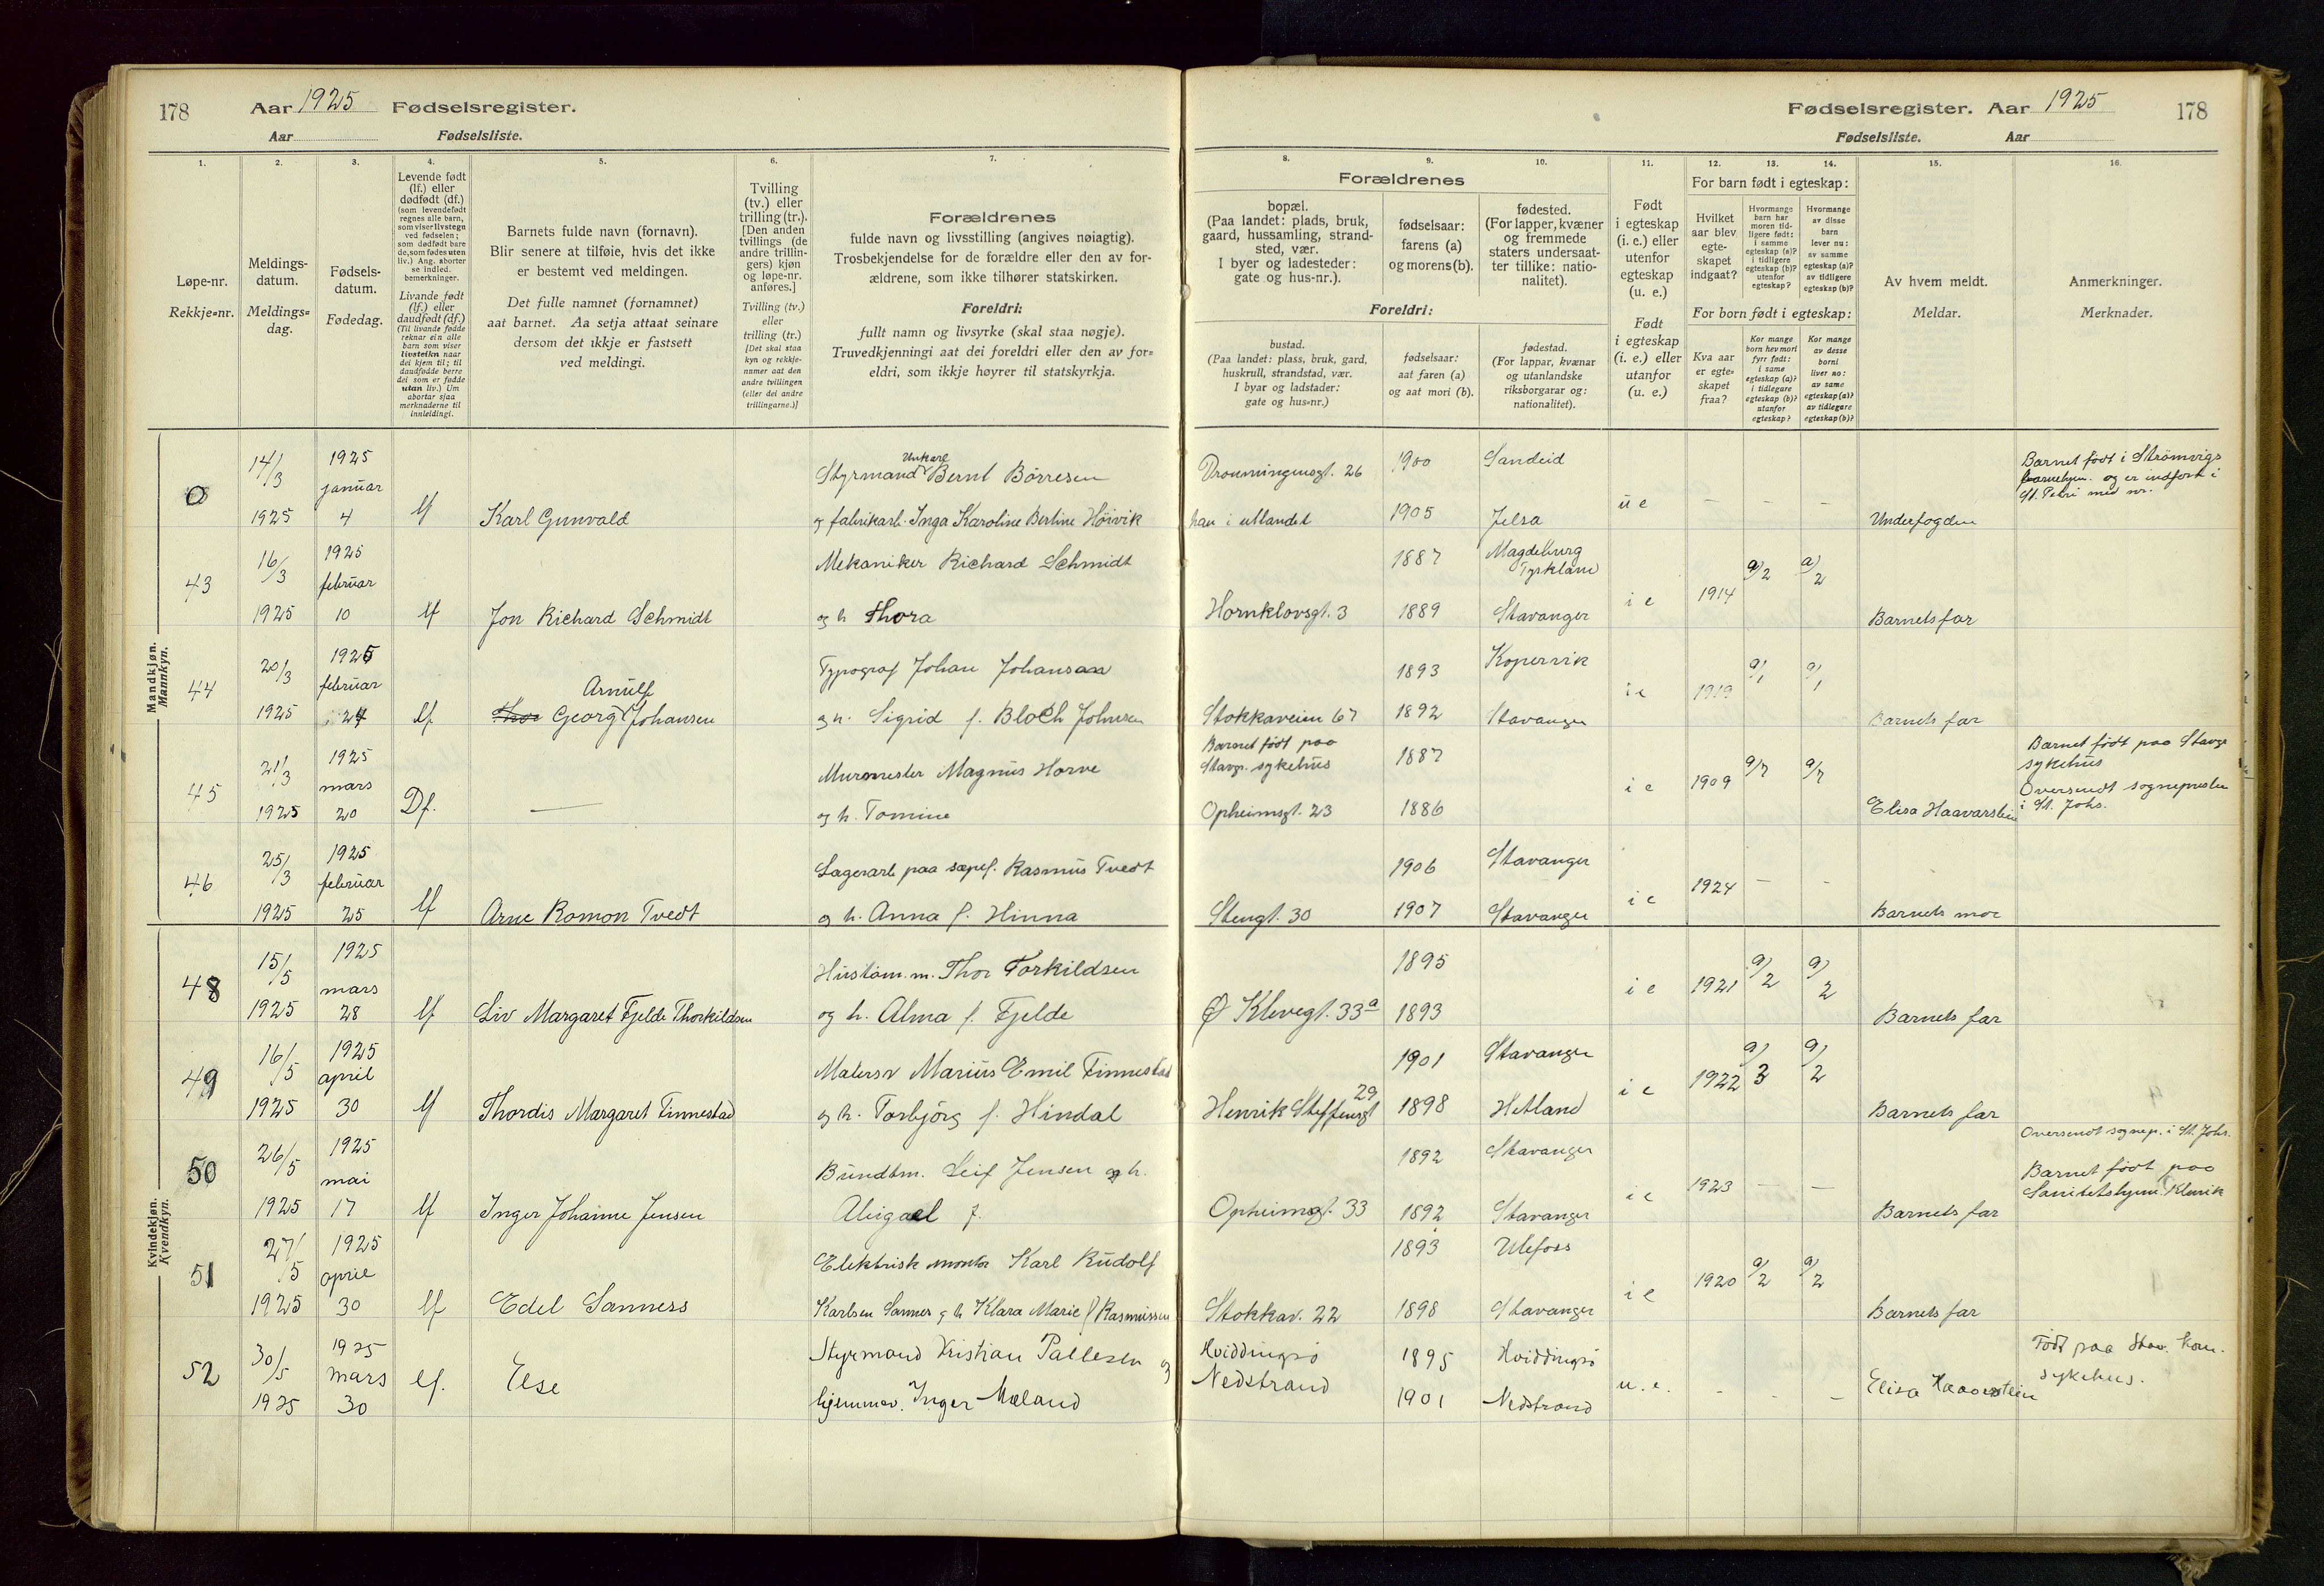 178 Aar 1925 Fødselsregister.
Aar Fødselsliste.
1. 2. 3. 4. 5. 6. 7.
Løpe-nr.
Rekkje-nr.
Meldings-
datum.
Meldings-
dag.
Fødsels-
datum.
Fødedag.
Levende født
(lf.) eller
dødfødt (df.)
(som levendefødt
regnes alle barn,
som viser livstegn
ved fødselen;
som dødfødt bare
de, som fødes uten
liv.) Ang. aborter
se indled.
bemerkninger.
Livande født
(lf.) eller
daudfødt (df.)
(Til livande fødde
reknar ein alle
barn som viser
livsteikn naar
dei kjem til; til
daudfødde berre
dei som er fødde
utan liv.) Um
abortar sjaa
merknaderne til
innleidingi.
Barnets fulde navn (fornavn).
Blir senere at tilføie, hvis det ikke
er bestemt ved meldingen.
Det fulle namnet (fornamnet)
aat barnet. Aa setja attaat seinare
dersom det ikkje er fastsett
ved meldingi.
Tvilling
(tv.) eller
trilling (tr.).
[Den anden
tvillings (de
andre trillin-
gers) kjøn
og løpe-nr.
anføres.]
Tvilling (tv.)
eller
trilling (tr.)
[Det skal staa
kyn og rekkje-
numer aat den
andre tvillingen
(eller dei andre
trillingarne.)]
Forældrenes
fulde navn og livsstilling (angives nøiagtig).
Trosbekjendelse for de forældre eller den av for-
ældrene, som ikke tilhører statskirken.
Foreldri:
fullt namn og livsyrke (skal staa nøgje).
Truvedkjenningi aat dei foreldri eller den av for-
eldri, som ikkje høyrer til statskyrkja.
Mandkjøn.
Mannkyn.
0 14/3 1925 1925 januar 4 lf Karl Gunvald
Styrmand Unkarl Bernt Børresen
og fabrikarb. Inga Karoline Bertine Høivik
43 16/3 1925 1925 februar 10 lf Jon Richard Schmidt
Mekaniker Richard Schmidt
og h Thora
44 20/3 1925 1925 februar 24 lf Thor Georg Arnulf Johansen
Typograf Johan Johansen
og h. Sigrid f. Bloch Johnsen
45 21/3 1925 1925 mars 20 Df. —
Murmester Magnus Horve
og h. Tomine
46 25/3 1925 1925 februar 25 lf Arne Romon Tvedt
Lagerarb paa sæpef. Rasmus Tvedt
og h. Anna f. Hinna
Kvindekjøn.
Kvendkyn.
48 15/5 1925 1925 mars 28 lf Liv Margaret Fjelde Thorkildsen
Thor Torkildsen
og h. Alma f. Fjelde
49 16/5 1925 1925 april 30 lf Thordis Margaret Finnestad
Malersv Marius Emil Finnestad
og h. Torbjörg f. Hindal
50 26/5 1925 1925 mai 17 lf Inger Johanne Jensen
Bundtm. Leif Jensen og h.
Abigael f.
51 27/5 1925 1925 april 30 lf Edel Sanness
Elektrisk montør Karl Rudolf
Karlsen Sannes og h Klara Marie f Rasmussen
52 30/5 1925 1925 mars 30 lf. Else
Styrmand Kristian Pallesen og
hjemmev. Inger Mæland
Fødselsregister. Aar 1925 178
Fødselsliste. Aar
8. 9. 10. 11. 12. 13. 14. 15. 16.
Forældrenes
bopæl.
(Paa landet: plads, bruk,
gaard, hussamling, strand-
sted, vær.
I byer og ladesteder:
gate og hus-nr.).
fødselsaar:
farens (a)
og morens (b).
fødested.
(For lapper, kvæner
og fremmede
staters undersaat-
ter tillike: natio-
nalitet).
Foreldri:
bustad.
(Paa landet: plass, bruk, gard,
huskrull, strandstad, vær.
I byar og ladstader:
gate og hus-nr.)
fødselsaar:
aat faren (a)
og aat mori (b).
fødestad.
(For lappar, kvænar
og utanlandske
riksborgarar og:
nationalitet).
Født
i egteskap
(i. e.) eller
utenfor
egteskap
(u. e.)
Født
i egteskap
(i. e.) eller
utanfor
(u. e.)
For barn født i egteskap:
Hvilket
aar blev
egte-
skapet
indgaat?
Hvormange
barn har
moren tid-
ligere født:
i samme
egteskap (a)?
i tidligere
egteskap (b)?
utenfor
egteskap?
Hvormange
av disse
barn
lever nu:
av samme
egteskap (a)?
av tidligere
egteskap (b)?
For born født i egteskap:
Kva aar
er egte-
skapet
fraa?
Kor mange
born hev mori
fyrr født:
i same
egteskap (a)?
i tidlegare
egteskap (b)?
utanfor
egteskap?
Kor mange
av desse
borni
liver no:
av same
egteskap (a)?
av tidlegare
egteskap (b)?
Av hvem meldt.
Meldar.
Anmerkninger.
Merknader.
Dronningensgt. 26 1900 Sandeid
han i utlandet 1905 Jelsa u e — — — Underfogden
Barnet født i Strømvigs
barnehjem. og er indført i
St. Petri med nr.
1887 Magdeburg Tyskland
Hornklovsgt. 3 1889 Stavanger i e 1914 a/2 a/2 Barnets far
1893 Kopervik
Stokkaveien 67 1892 Stavanger i e 1919 a/1 a/1 Barnets far
Barnet født paa
Stavgr. sykehus 1887
Opheimsgt. 23 1886 i e 1909 a/7 a/7 Elisa Haavarstein
Barnet født paa Stavgr
sykehus
Oversendt sognepresten
i St. Johs.
1906 Stavanger
Stengt. 30 1907 Stavanger i e 1924 — - Barnets mor
1895
Ø Klevegt. 33a 1893 i e 1921 a/2 a/2 Barnets far
1901 Stavanger
Henrik Steffensgt 29 1898 Hetland i e 1922 a/3 a/2 Barnets far
1892 Stavanger
Opheimsgt. 33 1892 Stavanger i e 1923 — — Barnets far
Oversendt sognep. i St. Johs.
Barnet født paa
Sanitetshjem. Klinik
1893 Ulefoss
Stokkav. 22 1898 Stavanger i e 1920 a/2 a/2 Barnets far
Hviddingsø 1895 Hviddingsø
Nedstrand 1901 Nedstrand u. e. - - - Elisa Haaverstein
Født paa Stav. kom.
sykehus.